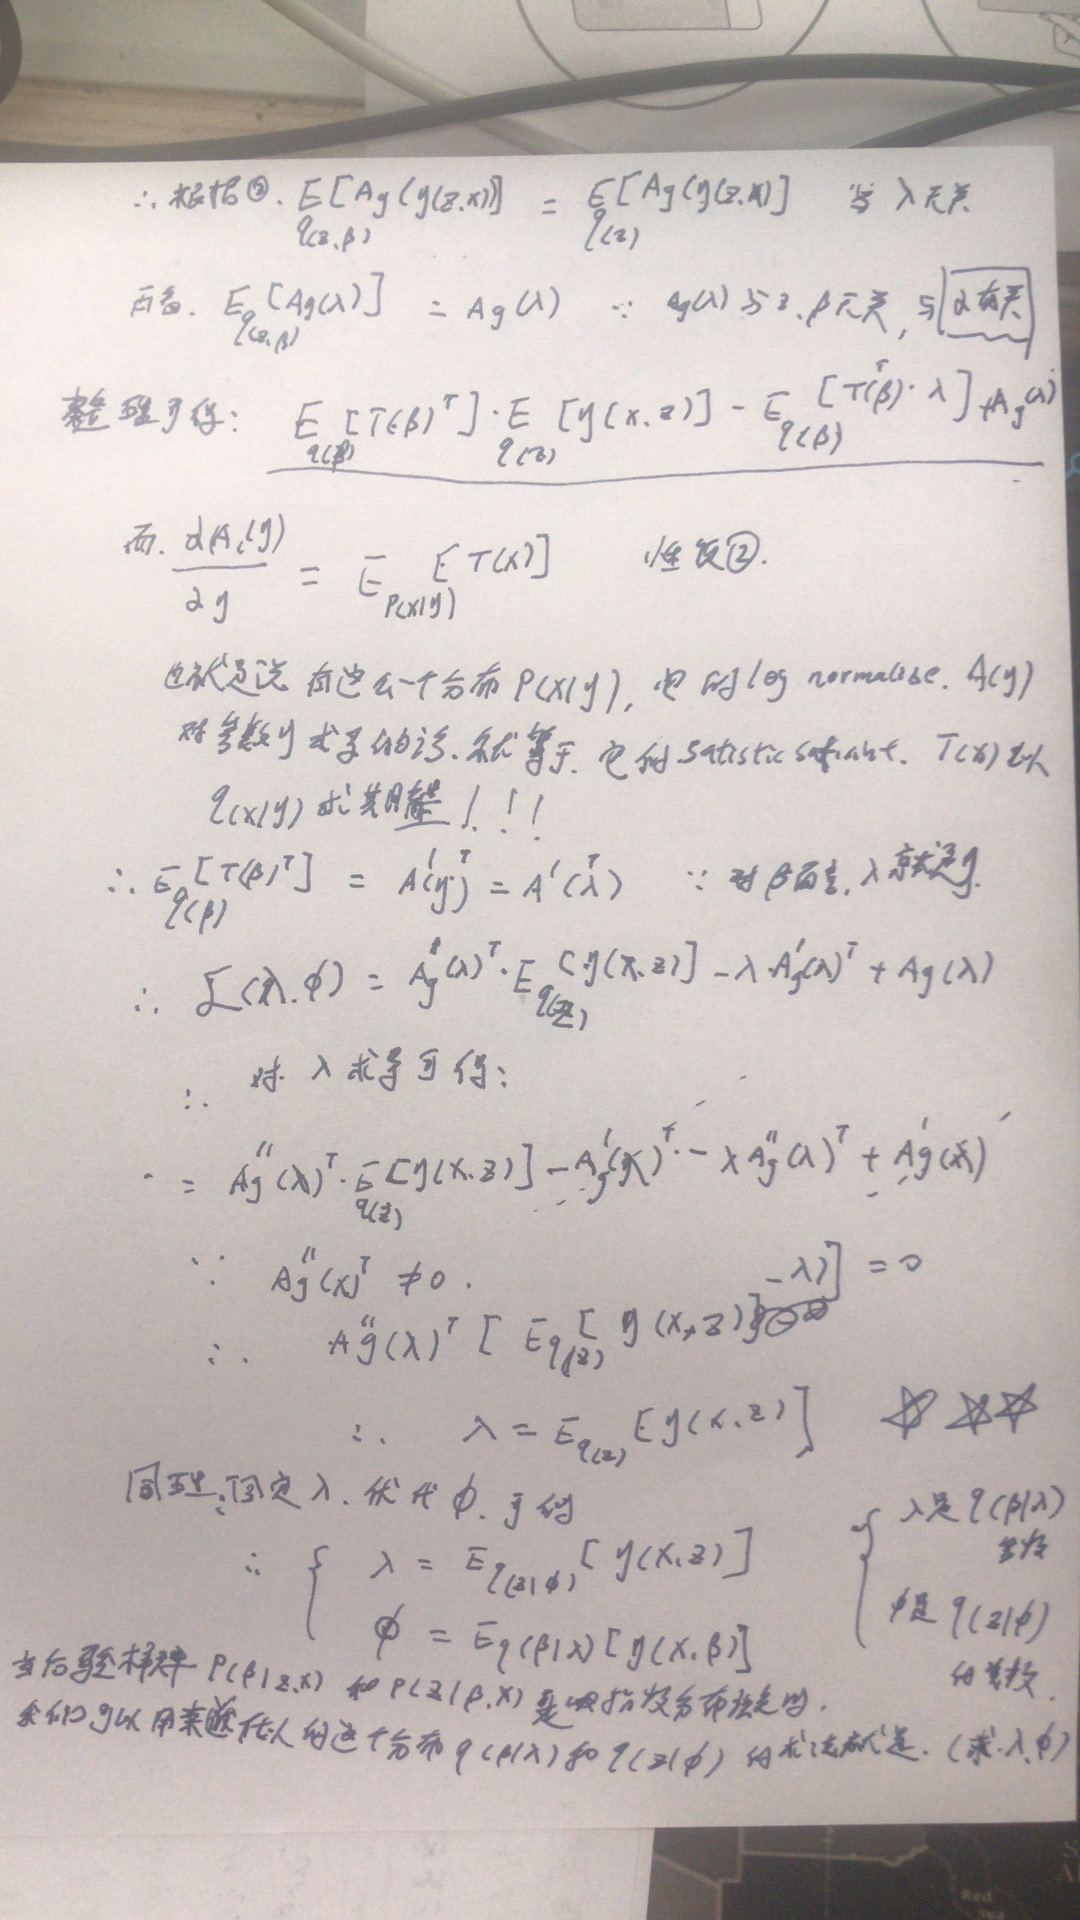 ∴ 根据②. E_{q(z,β)}[Ag(η(z,x))] = E_{q(z)}[Ag(η(z,x))] 与 λ 无关
而 E_{q(z,β)}[Ag(λ)] = Ag(λ) ∵ Ag(λ) 与 z, β 无关, 与 λ 有关
整理可得: E_{q(β)}[T(β)^T]·E_{q(z)}[η(x,z)] - E_{q(β)}[T(β)^T·λ] + Ag(λ)
而. ∂A(η)/∂η = E_{P(x|η)}[T(x)] 性质②.
也就是说 有这么一个分布 P(x|η), 它的 log normalise. A(η)
对参数 η 求导的话. 就等于. 它的 T(x) 以
q(x|η) 求其期望!!!
∴ E_{q(β)}[T(β)^T] = A'(η)^T = A'(λ)^T ∵ 对 β 而言, λ 就是 η.
∴ L(λ,φ) = A'g(λ)^T·E_{q(z)}[η(x,z)] - λ·A'g(λ)^T + Ag(λ)
∴ 对 λ 求导可得:
= A''g(λ)^T·E_{q(z)}[η(x,z)] - A'g(λ)^T - λA''g(λ)^T + A'g(λ)
∵ A''g(λ)^T ≠ 0.
∴ A''g(λ)^T[E_{q(z)}[η(x,z)] - λ] = 0
∴ λ = E_{q(z)}[η(x,z)] ☆☆☆
同理: 固定 λ. 优化 φ. 可得
∴ { λ = E_{q(z|φ)}[η(x,z)]
φ = E_{q(β|λ)}[η(x,β)]
{ λ是 q(β|λ) 参数
φ是 q(z|φ) 的参数.
当后验概率 P(β|z,x) 和 P(z|β,x) 是指数分布族时.
我们可以用来的这个分布 q(β|λ) 和 q(z|φ) 的求法就是. (求 λ,φ)
Red